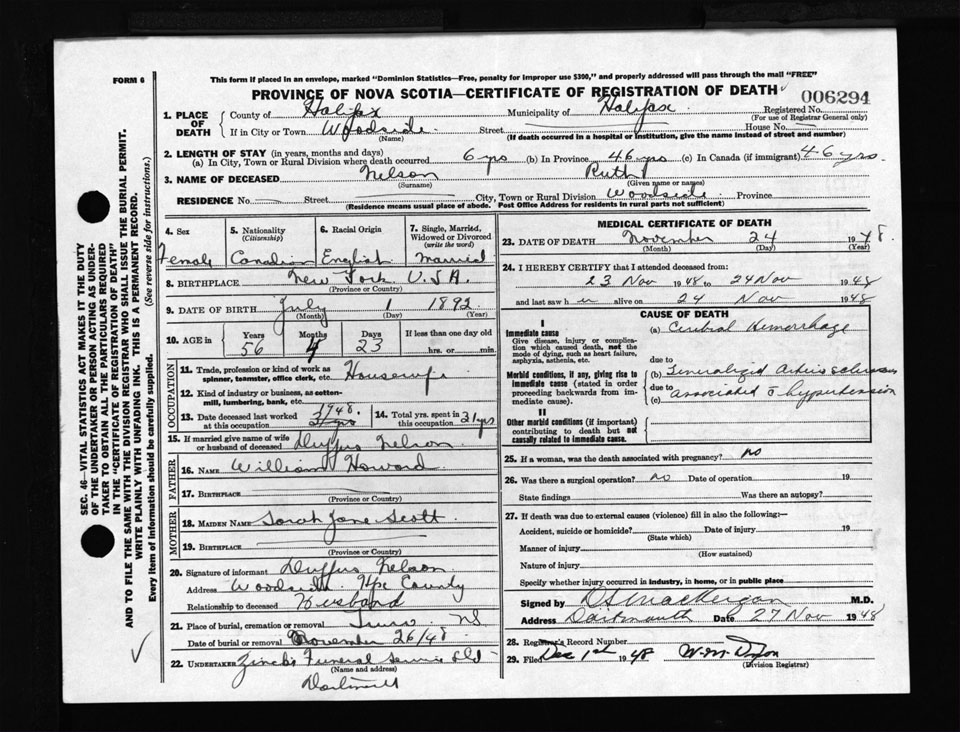 FORM 6
This form if placed in an envelope, marked "Dominion Statistics—Free, penalty for improper use $300," and properly addressed will pass through the mail "FREE"
PROVINCE OF NOVA SCOTIA—CERTIFICATE OF REGISTRATION OF DEATH
006294
1. PLACE OF DEATH
County of Halifax Municipality of Halifax Registered No.
(For use of Registrar General only)
If in City or Town Woodside Street House No.
(Name) (If death occurred in a hospital or institution, give the name instead of street and number)
2. LENGTH OF STAY (in years, months and days)
(a) In City, Town or Rural Division where death occurred 6 yrs (b) In Province 46 yrs (c) In Canada (if immigrant) 46 yrs.
3. NAME OF DECEASED Nelson Ruth
(Surname) (Given name or names)
RESIDENCE No. Street City, Town or Rural Division Woodside Province
(Residence means usual place of abode. Post Office Address for residents in rural parts not sufficient)
4. Sex Female
5. Nationality (Citizenship) Canadian
6. Racial Origin English
7. Single, Married, Widowed or Divorced (write the word) Married
8. BIRTHPLACE New York U.S.A.
(Province or Country)
9. DATE OF BIRTH July 1 1892
(Month) (Day) (Year)
10. AGE in Years Months Days If less than one day old
56 4 23 hrs. or min.
OCCUPATION
11. Trade, profession or kind of work as spinner, teamster, office clerk, etc. Housewife
12. Kind of industry or business, as cotton-mill, lumbering, bank, etc.
13. Date deceased last worked at this occupation 1948.
14. Total yrs. spent in this occupation 31 yrs
15. If married give name of wife or husband of deceased Duffus Nelson
FATHER
16. NAME William Howard
17. BIRTHPLACE
(Province or Country)
MOTHER
18. MAIDEN NAME Sarah Jane Scott
19. BIRTHPLACE
(Province or Country)
20. Signature of informant Duffus Nelson
Address Woodside Hfx County
Relationship to deceased Husband
21. Place of burial, cremation or removal Truro NS
Date of burial or removal November 26/48
22. UNDERTAKER Zinck's Funeral Service Ltd
(Name and address)
Dartmouth
MEDICAL CERTIFICATE OF DEATH
23. DATE OF DEATH November 24 1948.
(Month) (Day) (Year)
24. I HEREBY CERTIFY that I attended deceased from:
23 Nov 1948 to 24 Nov 1948
and last saw her alive on 24 Nov 1948
CAUSE OF DEATH
I
Immediate cause
Give disease, injury or complication which caused death, not the mode of dying, such as heart failure, asphyxia, asthenia, etc.
(a) Cerebral Hemorrhage
due to
Morbid conditions, if any, giving rise to immediate cause (stated in order proceeding backwards from immediate cause).
(b) Generalized Arteriosclerosis
due to
(c) associated c̄ hypertension
II
Other morbid conditions (if important) contributing to death but not causally related to immediate cause.
25. If a woman, was the death associated with pregnancy? no
26. Was there a surgical operation? no Date of operation 19
State findings Was there an autopsy?
27. If death was due to external causes (violence) fill in also the following:—
Accident, suicide or homicide? Date of injury 19
(State which)
Manner of injury
(How sustained)
Nature of injury
Specify whether injury occurred in industry, in home, or in public place
Signed by M.D.
Address Dartmouth Date 27 Nov 1948
28. Registrar's Record Number
29. Filed Dec 1st 1948
(Division Registrar)
SEC. 46—VITAL STATISTICS ACT MAKES IT THE DUTY OF THE UNDERTAKER OR PERSON ACTING AS UNDERTAKER TO OBTAIN ALL THE PARTICULARS REQUIRED IN THE "CERTIFICATE OF REGISTRATION OF DEATH" AND TO FILE THE SAME WITH THE DIVISION REGISTRAR WHO SHALL ISSUE THE BURIAL PERMIT.
WRITE PLAINLY WITH UNFADING INK. THIS IS A PERMANENT RECORD.
Every item of information should be carefully supplied. (See reverse side for instructions.)